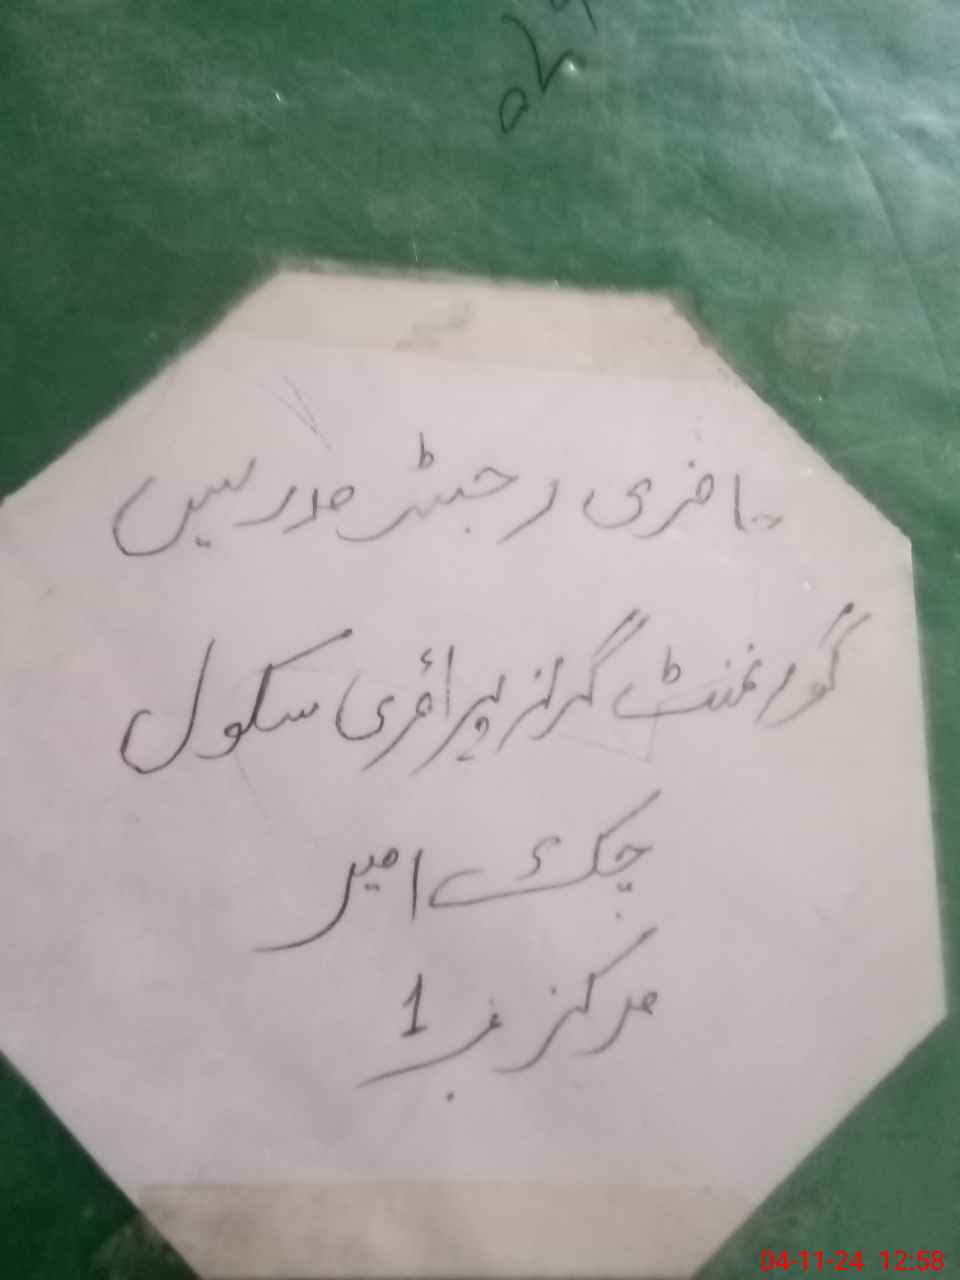 حاضری رجسٹر مدرسین
گورنمنٹ گرلز پرائمری سکول
چک امیر
مرکز نمبر 1
04-11-24 12:58